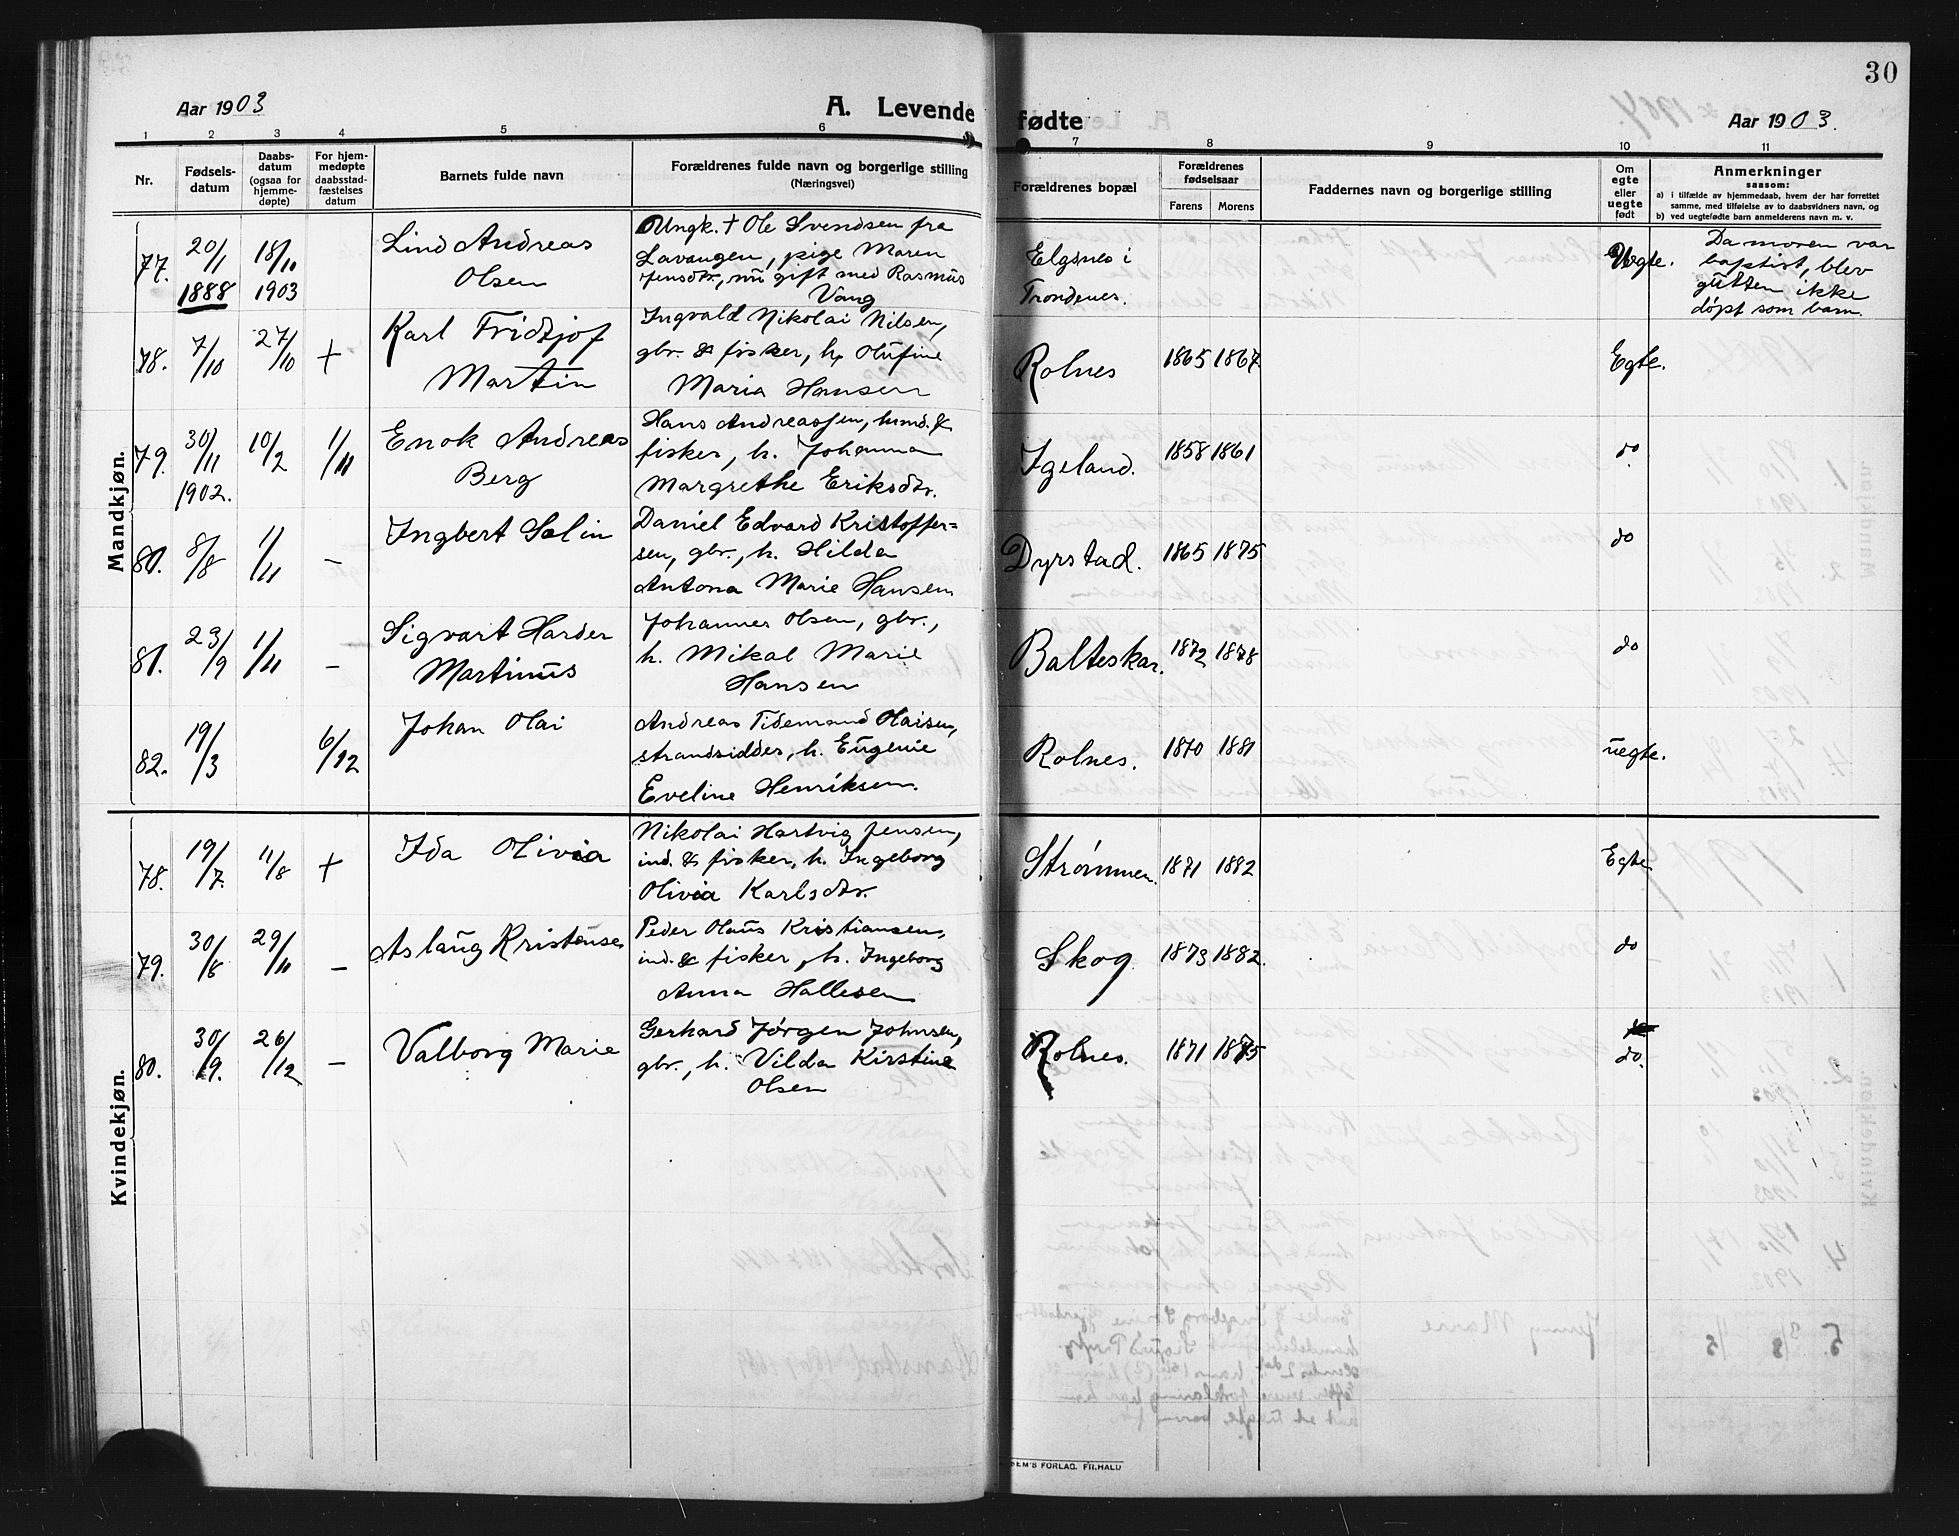 30
Aar 1903
A. Levende
fødte
Aar 1903.
1 2 3 4 5 6 7 8 9 10 11
Nr.
Fødsels-
datum
Daabs-
datum
(ogsaa for
hjemme-
døpte)
For hjem-
medøpte
daabsstad-
fæstelses
datum
Barnets fulde navn
Forældrenes fulde navn og borgerlige stilling
(Næringsvei)
Forældrenes bopæl
Forældrenes
fødselsaar
Farens Morens
Faddernes navn og borgerlige stilling
Om
egte
eller
uegte
født
Anmerkninger
saasom:
a) i tilfælde av hjemmedaab, hvem der har forrettet
samme, med tilføielse av to daabsvidners navn, og
b) ved uegtefødte barn anmelderens navn m. v.
Mandkjøn.
77.
20/1
1888
18/10
1903
Lind Andreas
Olsen
Ungk. + Ole Svendsen fra
Lavangen, pige Maren
Jensdtr., nu gift med Rasmus
Vang
Elgsnes i
Trondenes.
Uegte.
Da moren var
baptist, blev
gutten ikke
døpt som barn.
78.
7/10
27/10
+
Karl Fridtjof
Martin
Ingvald Nikolai Nilsen,
gbr. & fisker, h. Olufine
Maria Hansen
Rolnes
1865 1867
Egte.
79.
30/11
1902.
10/2
1/11
Enok Andreas
Berg
Hans Andreassen, husmd. &
fisker, h. Johanna
Margrethe Eriksdtr.
Igeland.
1858 1861
do
80.
8/8
1/11
–
Ingbert Selin
Daniel Edvard Kristoffer=
sen, gbr., h. Hilda
Antona Marie Hansen
Dyrstad.
1865 1875
do
81.
23/9
1/11
–
Sigvart Harder
Martinus
Johannes Olsen, gbr.,
h. Mikal Marie
Hansen
Balteskar.
1872 1878
do
82.
19/3
6/12
Johan Olai
Andreas Tidemand Olaisen,
strandsidder, h. Eugenie
Eveline Henriksen.
Rolnes.
1870 1881
uegte.
Kvindekjøn.
78.
19/7.
11/8
+
Ida Olivia
Nikolai Hartvig Jensen,
ind. & fisker, h. Ingeborg
Olivia Karlsdtr.
Strømmen.
1871 1882
Egte
79.
30/8
29/11
–
Aslaug Kristense
Peder Olaus Kristiansen,
ind. & fisker, h. Ingeborg
Anna Hallesen
Skog
1873 1882.
do
80.
30/9.
26/12
–
Valborg Marie
Gerhard Jørgen Johnsen,
gbr., h. Vilda Kirstine
Olsen
Rolnes.
1871 1875
do.
SEM'S FORLAG. FR.HALD